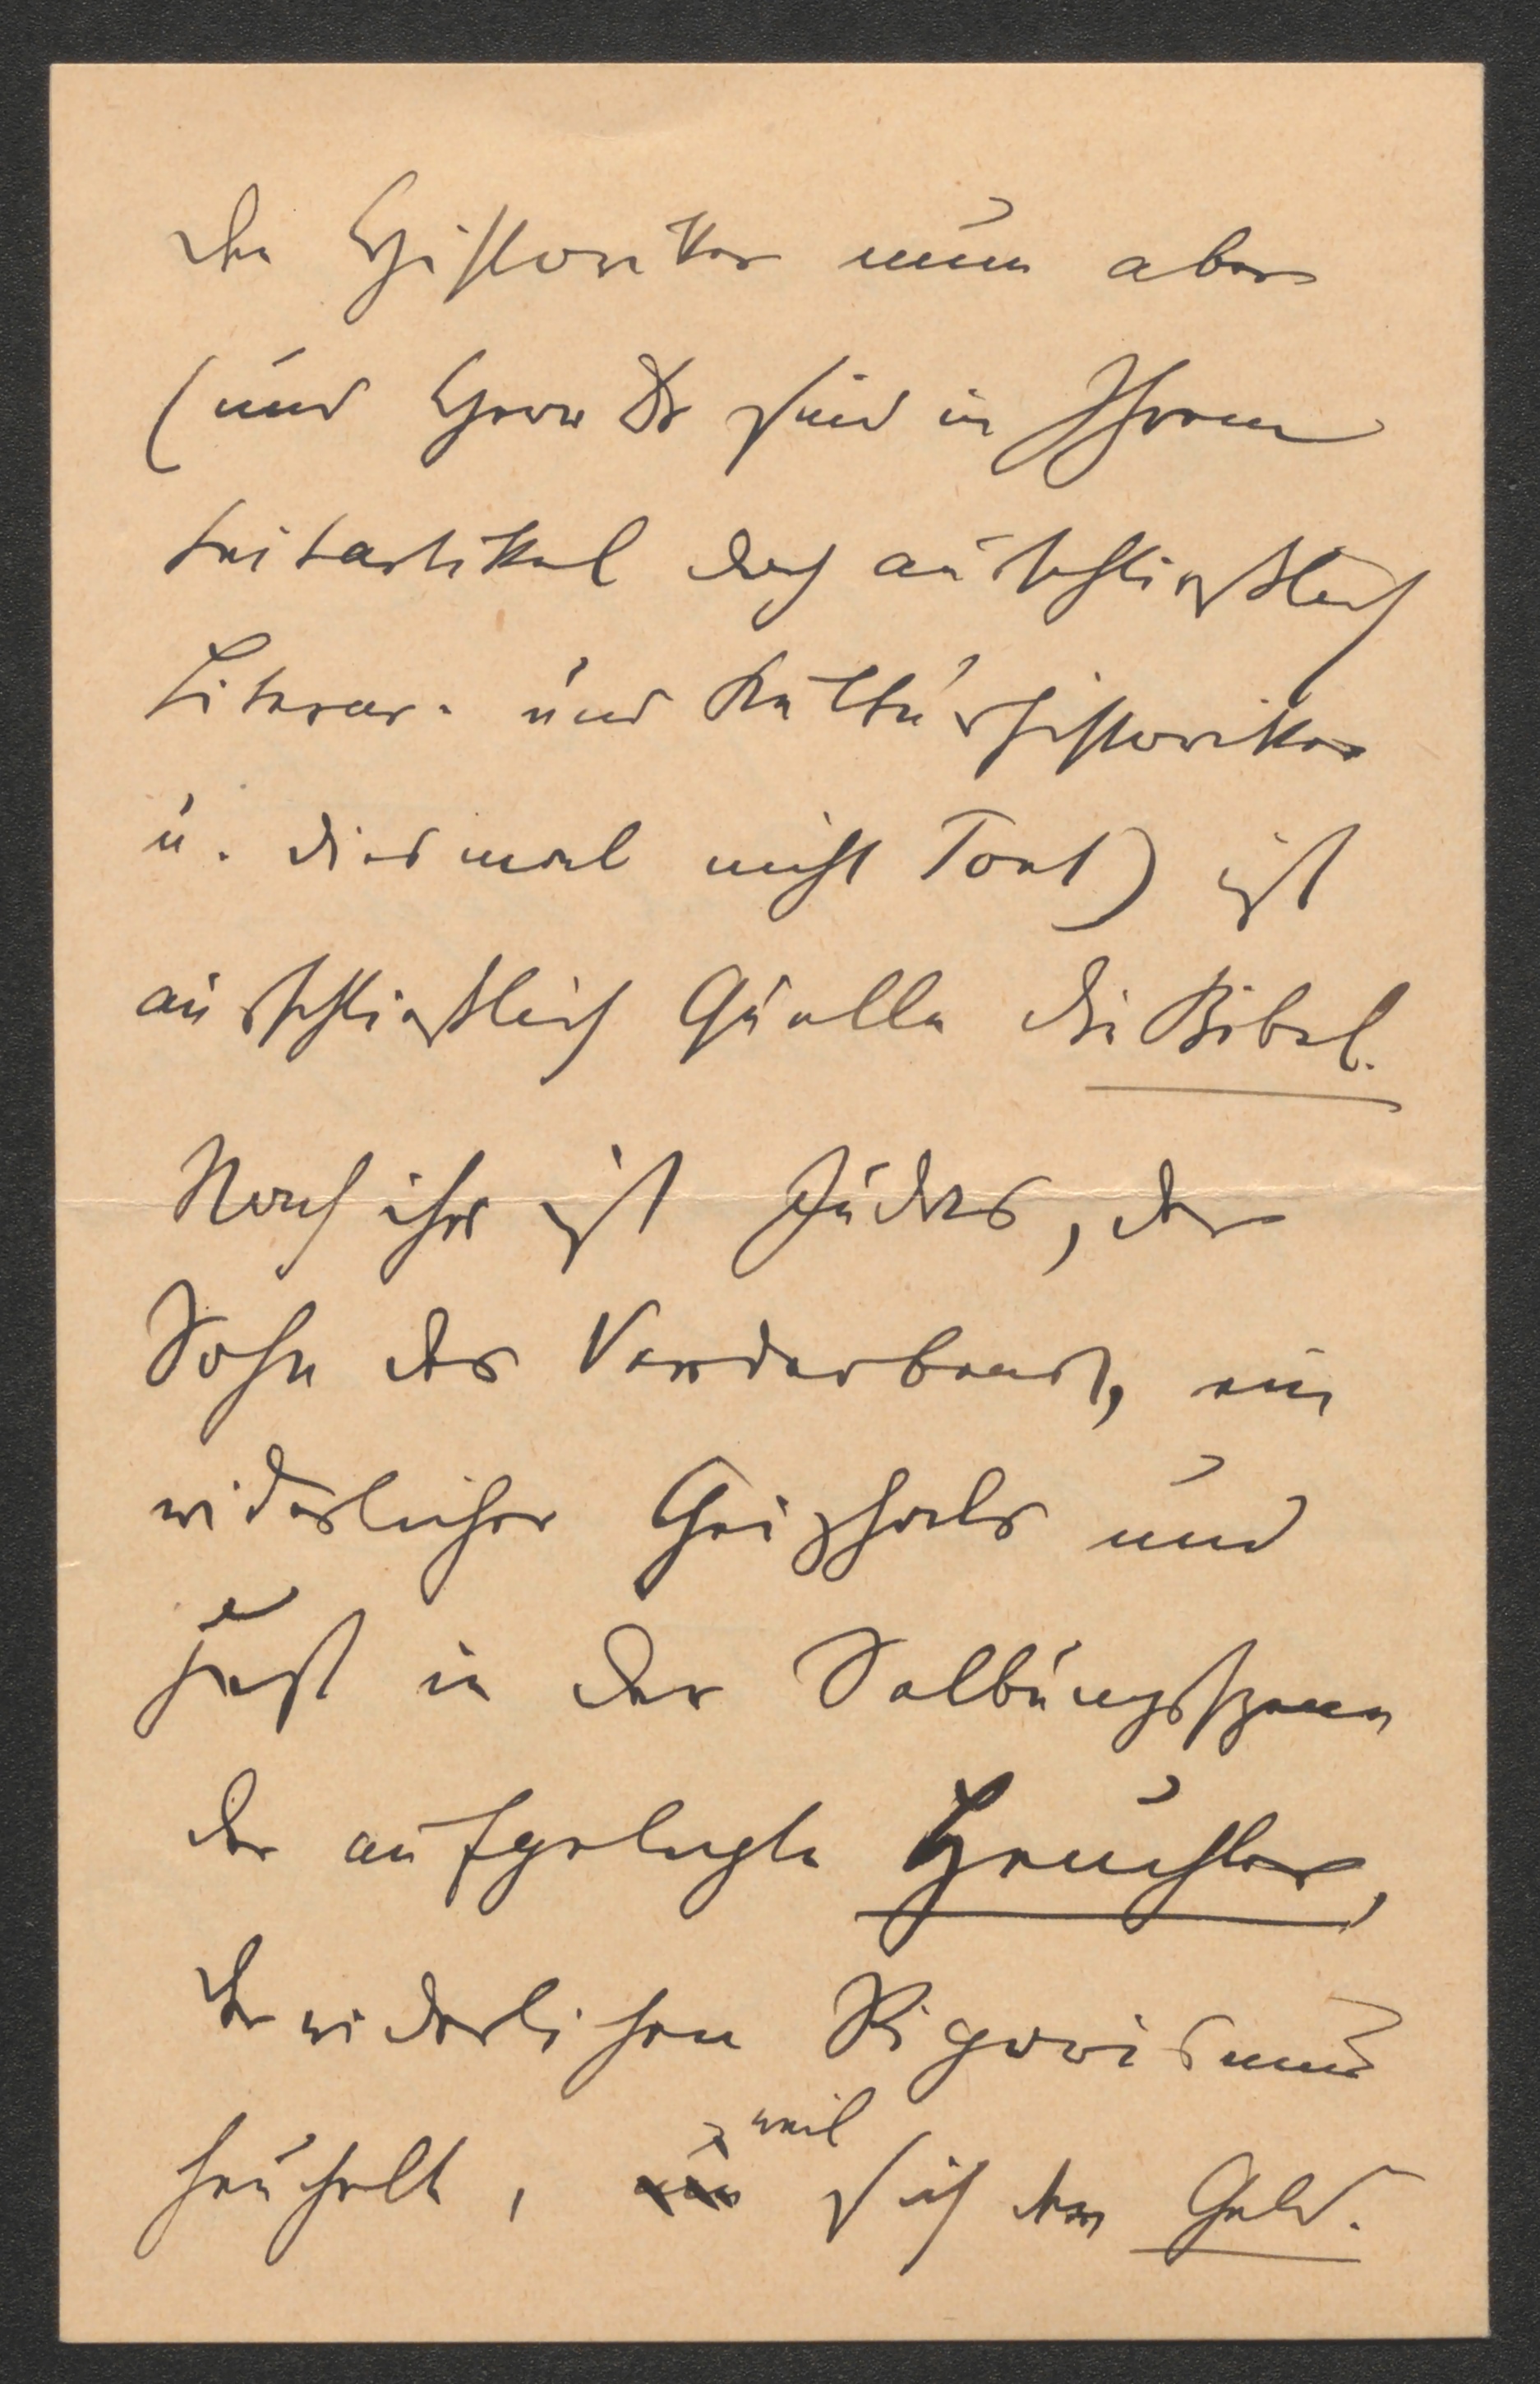 Dem Historiker nun aber
(und Herr Dr sind in Ihrem
Leitartikel doch ausschließlich
Literar- und Kulturhistoriker
u. diesmal nicht Poet) ist
ausschließlich Quelle die Bibel.
Nach ihr ist Judas, der
Sohn des Verderbens, ein
widerlicher Geizhals und
just in der Salbungsszene
der aufgelegte Heuchler,
der widerlichen Rigorismus
heuchelt, weil sich das Geld.